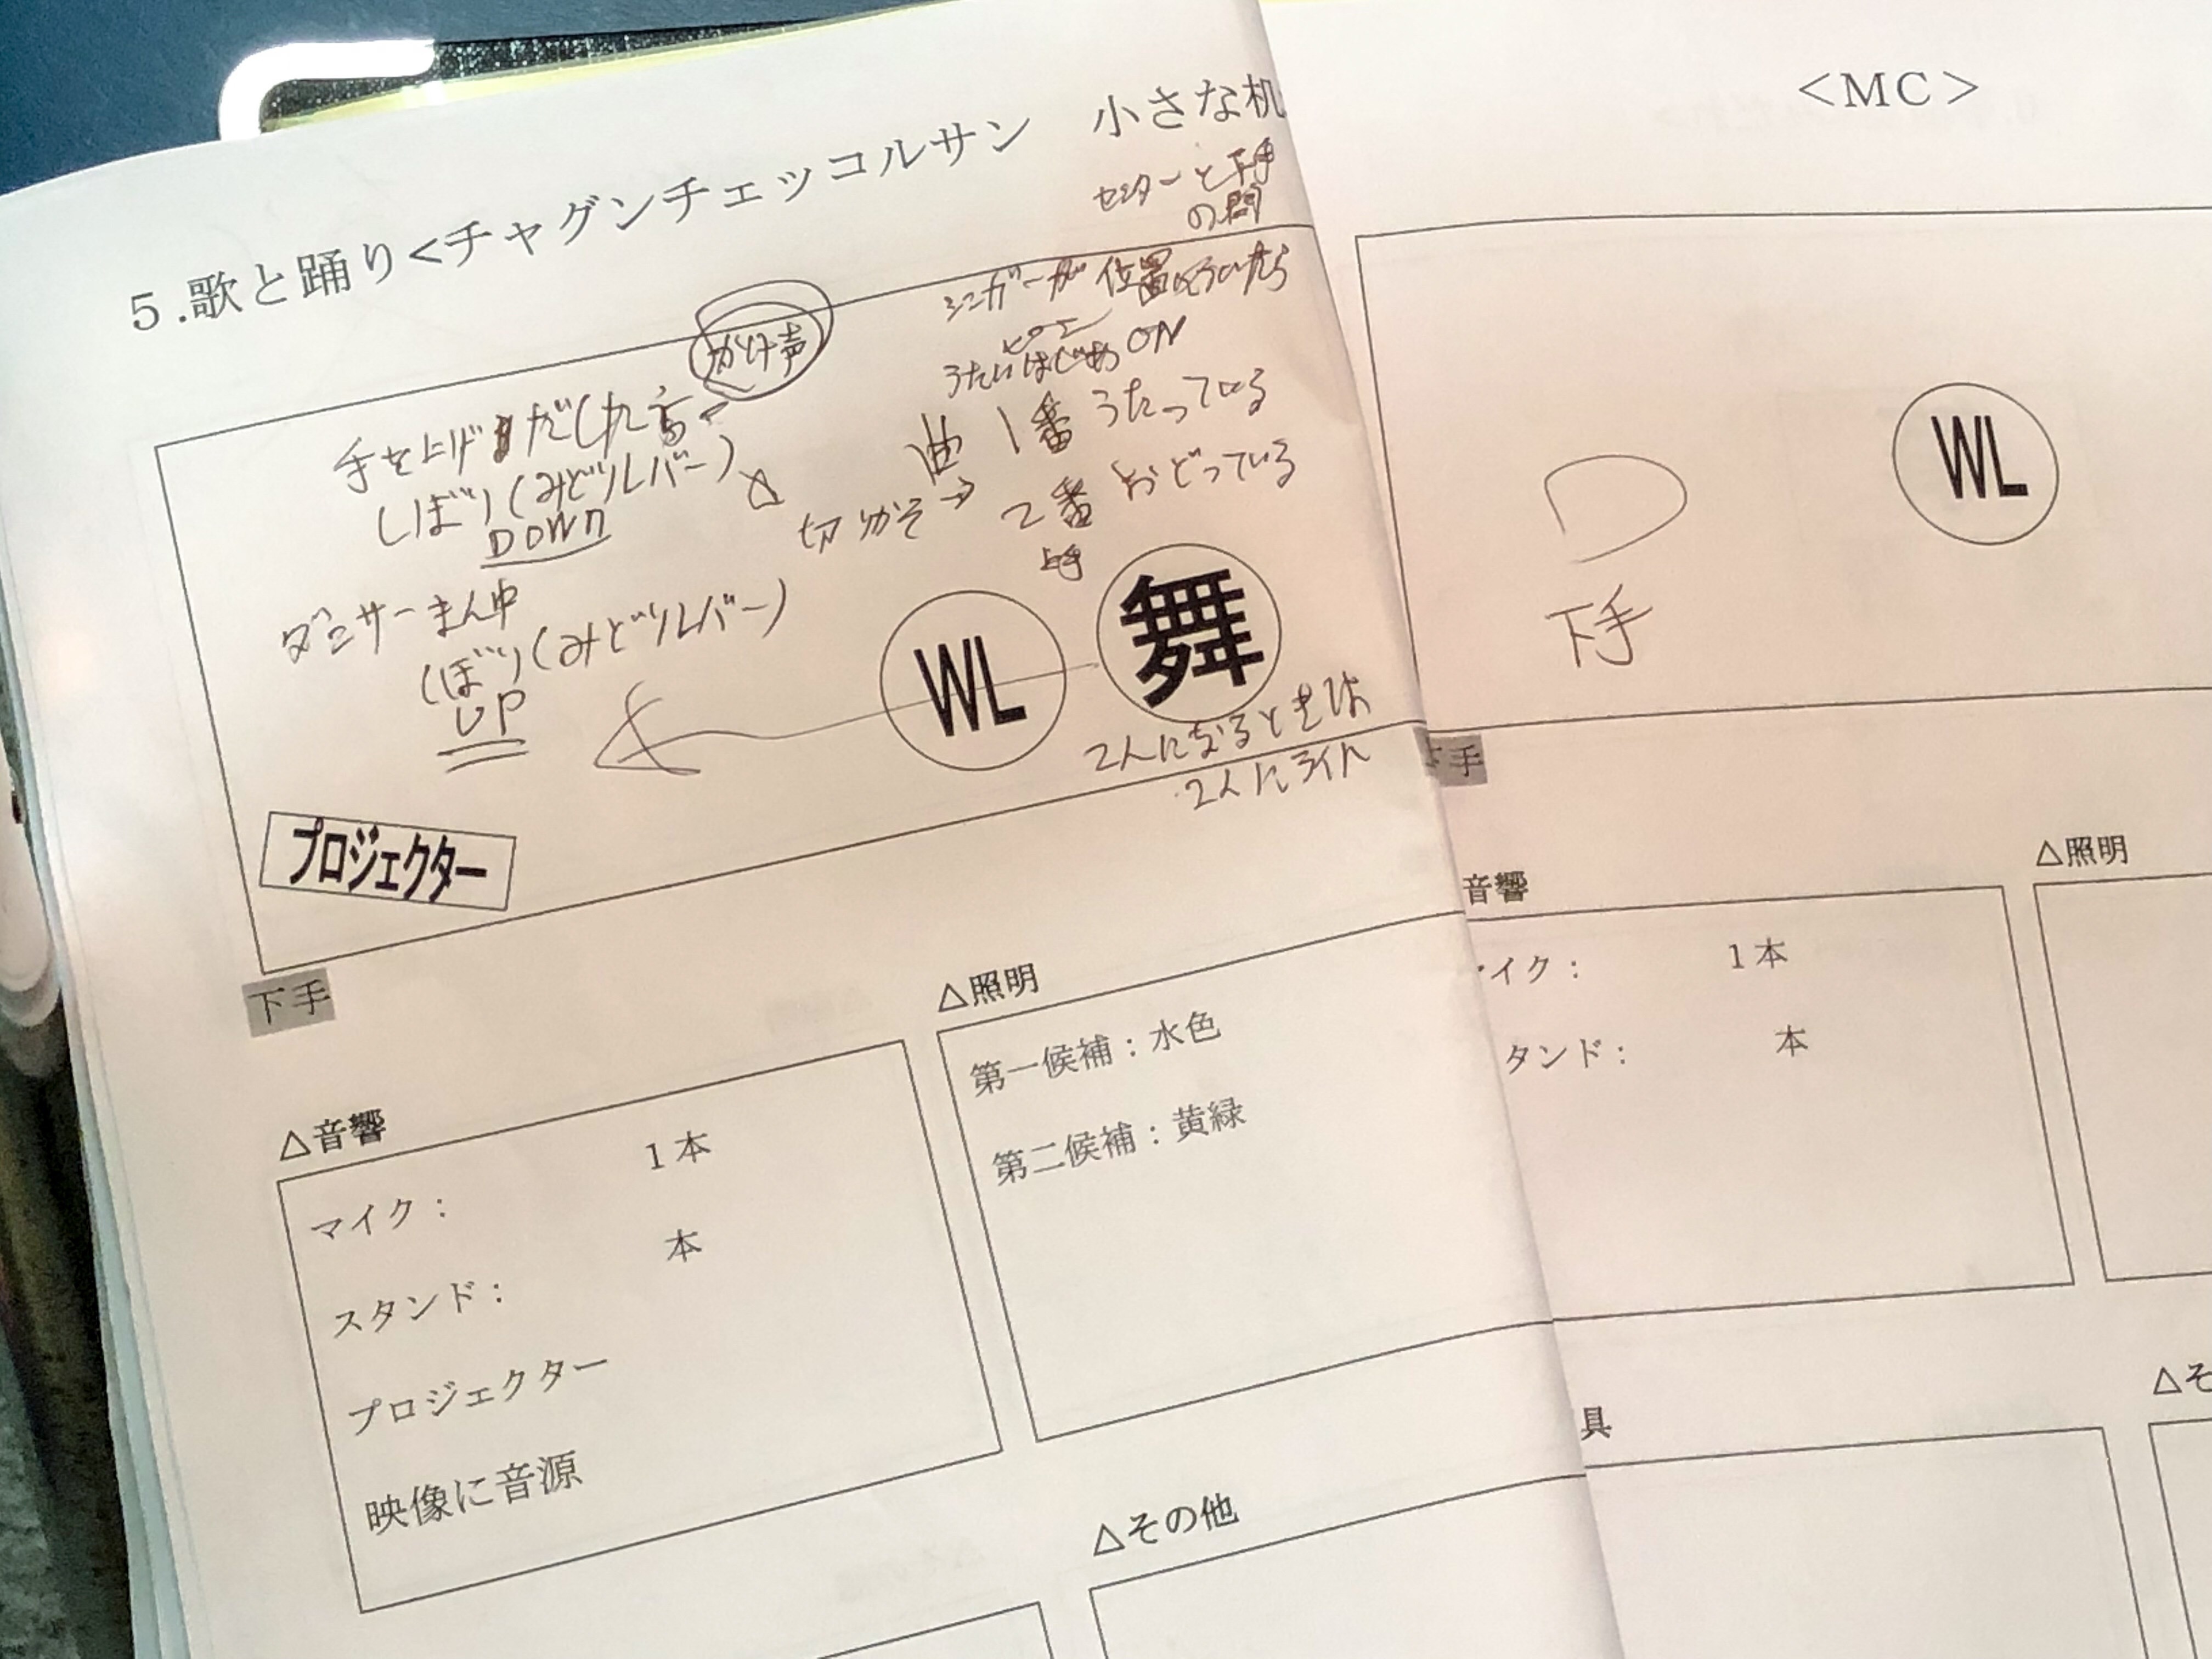 5.歌と踊り<チャグンチェッコルサン　小さな机
センターと下手
の間
かけ声
シンガーが位置についたら
ピン
うたいはじめON
手を上げだしたら
しぼり(みどりレバー)
DOWN
曲 1番 うたっている
切りかえ→ 2番 おどっている
上手
ダンサーまん中
しぼり(みどりレバー)
UP
WL
舞
2人になるときは
2人にライト
プロジェクター
下手
△音響
マイク： 1本
スタンド： 本
プロジェクター
映像に音源
△照明
第一候補：水色
第二候補：黄緑
△その他
<MC>
WL
下手
下手
音響
イク： 1本
タンド： 本
△照明
具
△そ